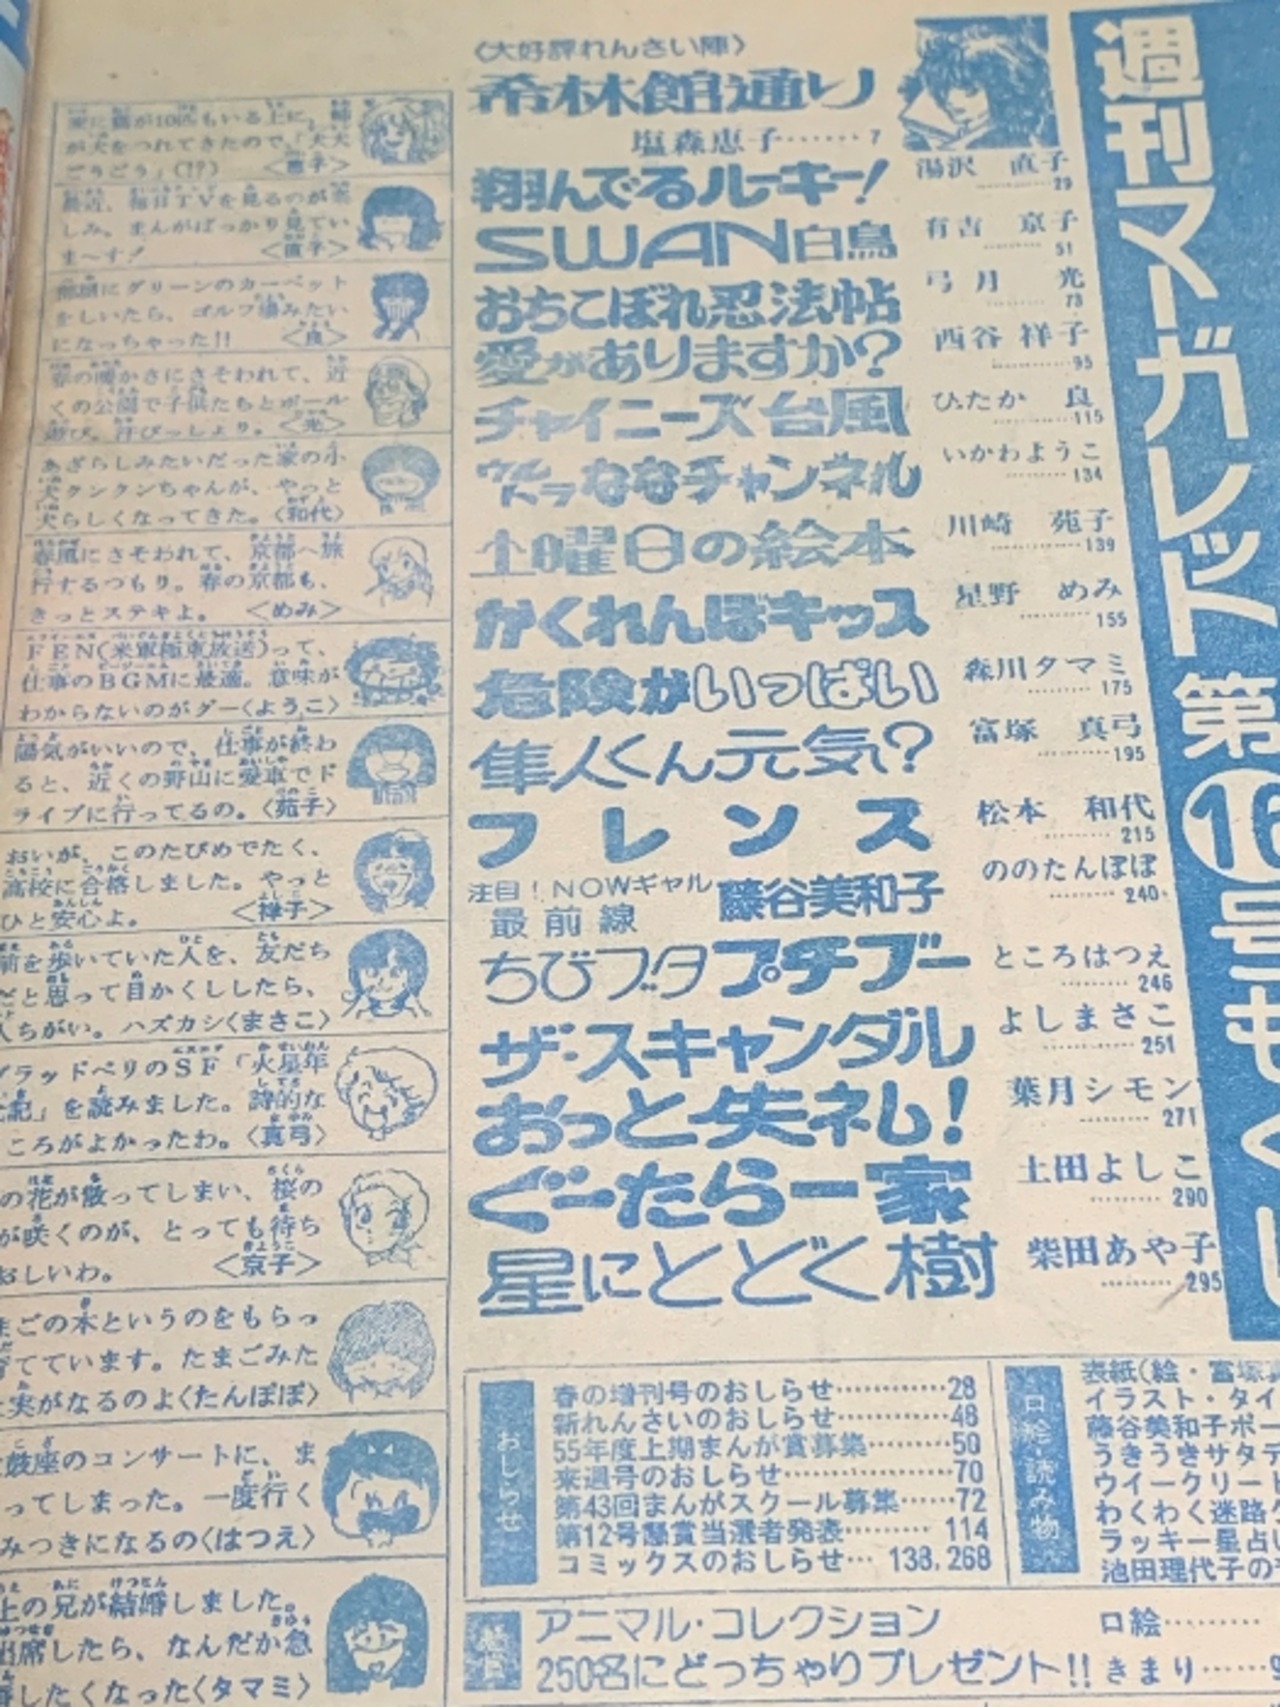 週刊マーガレット第16号もくじ
〈大好評れんさい陣〉
希林館通り
塩森恵子……7
翔んでるルーキー!
湯沢 直子
29
SWAN白鳥
有吉 京子
51
おちこぼれ忍法帖
弓月 光
73
愛がありますか?
西谷 祥子
95
チャイニーズ台風
ひたか 良
115
ウルトラななチャンネル
いかわようこ
134
土曜日の絵本
川崎 苑子
139
かくれんぼキッス
星野 めみ
155
危険がいっぱい
森川タマミ
175
隼人くん元気?
富塚 真弓
195
フレンズ
松本 和代
215
注目!NOWギャル
最前線
藤谷美和子
ののたんぽぽ
240
ちびブタプチブー
ところはつえ
246
ザ・スキャンダル
よしまさこ
251
おっと失礼!
葉月シモン
271
ぐーたら一家
土田よしこ
290
星にとどく樹
柴田あや子
295
家に猫が10匹もいる上に、姉
が犬をつれてきたので、「犬犬
ごうごう」(!?) 〈恵子〉
最近、毎日TVを見るのが楽
しみ。まんがばっかり見てい
ま〜す! 〈直子〉
部屋にグリーンのカーペット
をしいたら、ゴルフ場みたい
になっちゃった!! 〈良〉
春の暖かさにさそわれて、近
くの公園で子供たちとボール
遊び。汗びっしょり。〈光〉
あざらしみたいだった家の小
犬クンクンちゃんが、やっと
犬らしくなってきた。〈和代〉
春風にさそわれて、京都へ旅
行するつもり。春の京都も、
きっとステキよ。 〈めみ〉
FEN(米軍極東放送)って、
仕事のBGMに最適。意味が
わからないのがグー〈ようこ〉
陽気がいいので、仕事が終わ
ると、近くの野山に愛車でド
ライブに行ってるの。〈苑子〉
おいが、このたびめでたく、
高校に合格しました。やっと
ひと安心よ。 〈祥子〉
前を歩いていた人を、友だち
だと思って目かくししたら、
人ちがい。ハズカシ〈まさこ〉
ブラッドベリのSF「火星年
代記」を読みました。詩的な
ころがよかったわ。〈真弓〉
の花が散ってしまい、桜の
が咲くのが、とっても待ち
おしいわ。 〈京子〉
まごの木というのをもらっ
てています。たまごみた
実がなるのよ〈たんぽぽ〉
鼓座のコンサートに、ま
ってしまった。一度行く
みつきになるの〈はつえ〉
上の兄が結婚しました。
出席したら、なんだか急
したくなった〈タマミ〉
おしらせ
春の増刊号のおしらせ……28
新れんさいのおしらせ……48
55年度上期まんが賞募集……50
来週号のおしらせ……70
第43回まんがスクール募集……72
第12号懸賞当選者発表……114
コミックスのおしらせ…138,268
口絵・読み物
表紙(絵・富塚真
イラスト・タイ
藤谷美和子ポー
うきうきサタデ
ウイークリート
わくわく迷路ク
ラッキー星占い
池田理代子の
懸賞
アニマル・コレクション
口絵………
250名にどっちゃりプレゼント!!
きまり……9